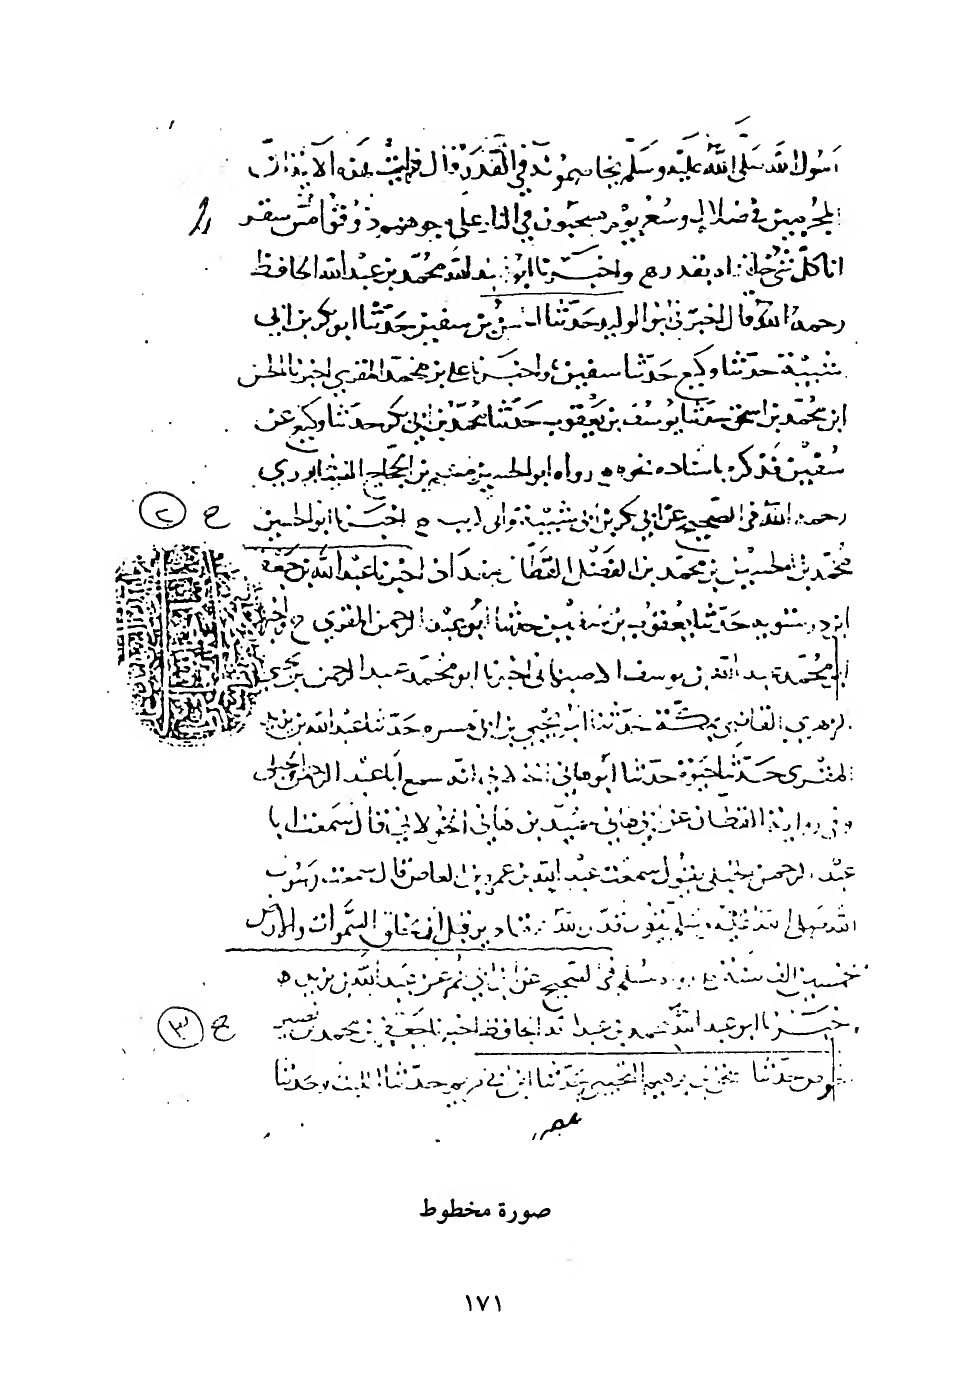 رسول الله صلى الله عليه وسلم يخاصمونه في القدر قال فنزلت هذه الاية ان
المجرمين في ضلال وسعر يوم يسحبون في النار على وجوههم ذوقوا مس سقر
انا كل شي خلقناه بقدر ح واخبرنا ابو عبد الله محمد بن عبد الله الحافظ
رحمه الله قال اخبرني ابو الوليد حدثنا الحسن بن سفين حدثنا ابو بكر بن ابي
شيبة حدثنا وكيع حدثنا سفين ح واخبرنا علي بن محمد المقري اخبرنا الحسن
ابن محمد بن اسحق حدثنا يوسف بن يعقوب حدثنا محمد بن ابي بكر حدثنا وكيع عن
سفين فذكره باسناده نحوه ه رواه ابو الحسين مسلم بن الحجاج النيسابوري
رحمه الله في الصحيح عن ابي بكر بن ابي شيبة وابي كريب ه اخبرنا ابو الحسين
ح ٢
محمد بن الحسين بن محمد بن الفضل القطان ببغداد اخبرنا عبد الله بن جعفر
ابن درستويه حدثنا يعقوب بن سفين حدثنا ابو عبد الرحمن المقري ح واخبرنا
ابو محمد عبد الله بن يوسف الاصبهاني اخبرنا ابو محمد عبد الرحمن بن يحيى
الزهري القاضي بمكة حدثنا ابو يحيى بن ابي مسره حدثنا عبد الله بن يزيد
المقري حدثنا حيوة حدثنا أبو هاني الخولاني انه سمع أبا عبد الرحمن الحبلي
وفي رواية القطان عن ابي هاني حميد بن هاني الخولاني قال سمعت ابا
عبد الرحمن الحبلي يقول سمعت عبد الله بن عمرو بن العاص قال سمعت رسول
الله صلى الله عليه وسلم يقول قدر الله المقادير قبل ان يخلق السموات والارض
خمسين الف سنة رواه مسلم في الصحيح عن ابن ابي عمر عن عبد الله بن يزيد ه
اخبرنا ابو عبد الله محمد بن عبد الله الحافظ اخبرنا جعفر بن محمد بن نصير
ح ٣
حدثنا بن ابرهيم حدثنا ابن ابي مريم حدثنا الليث وحدثنا
صورة مخطوط
١٧١